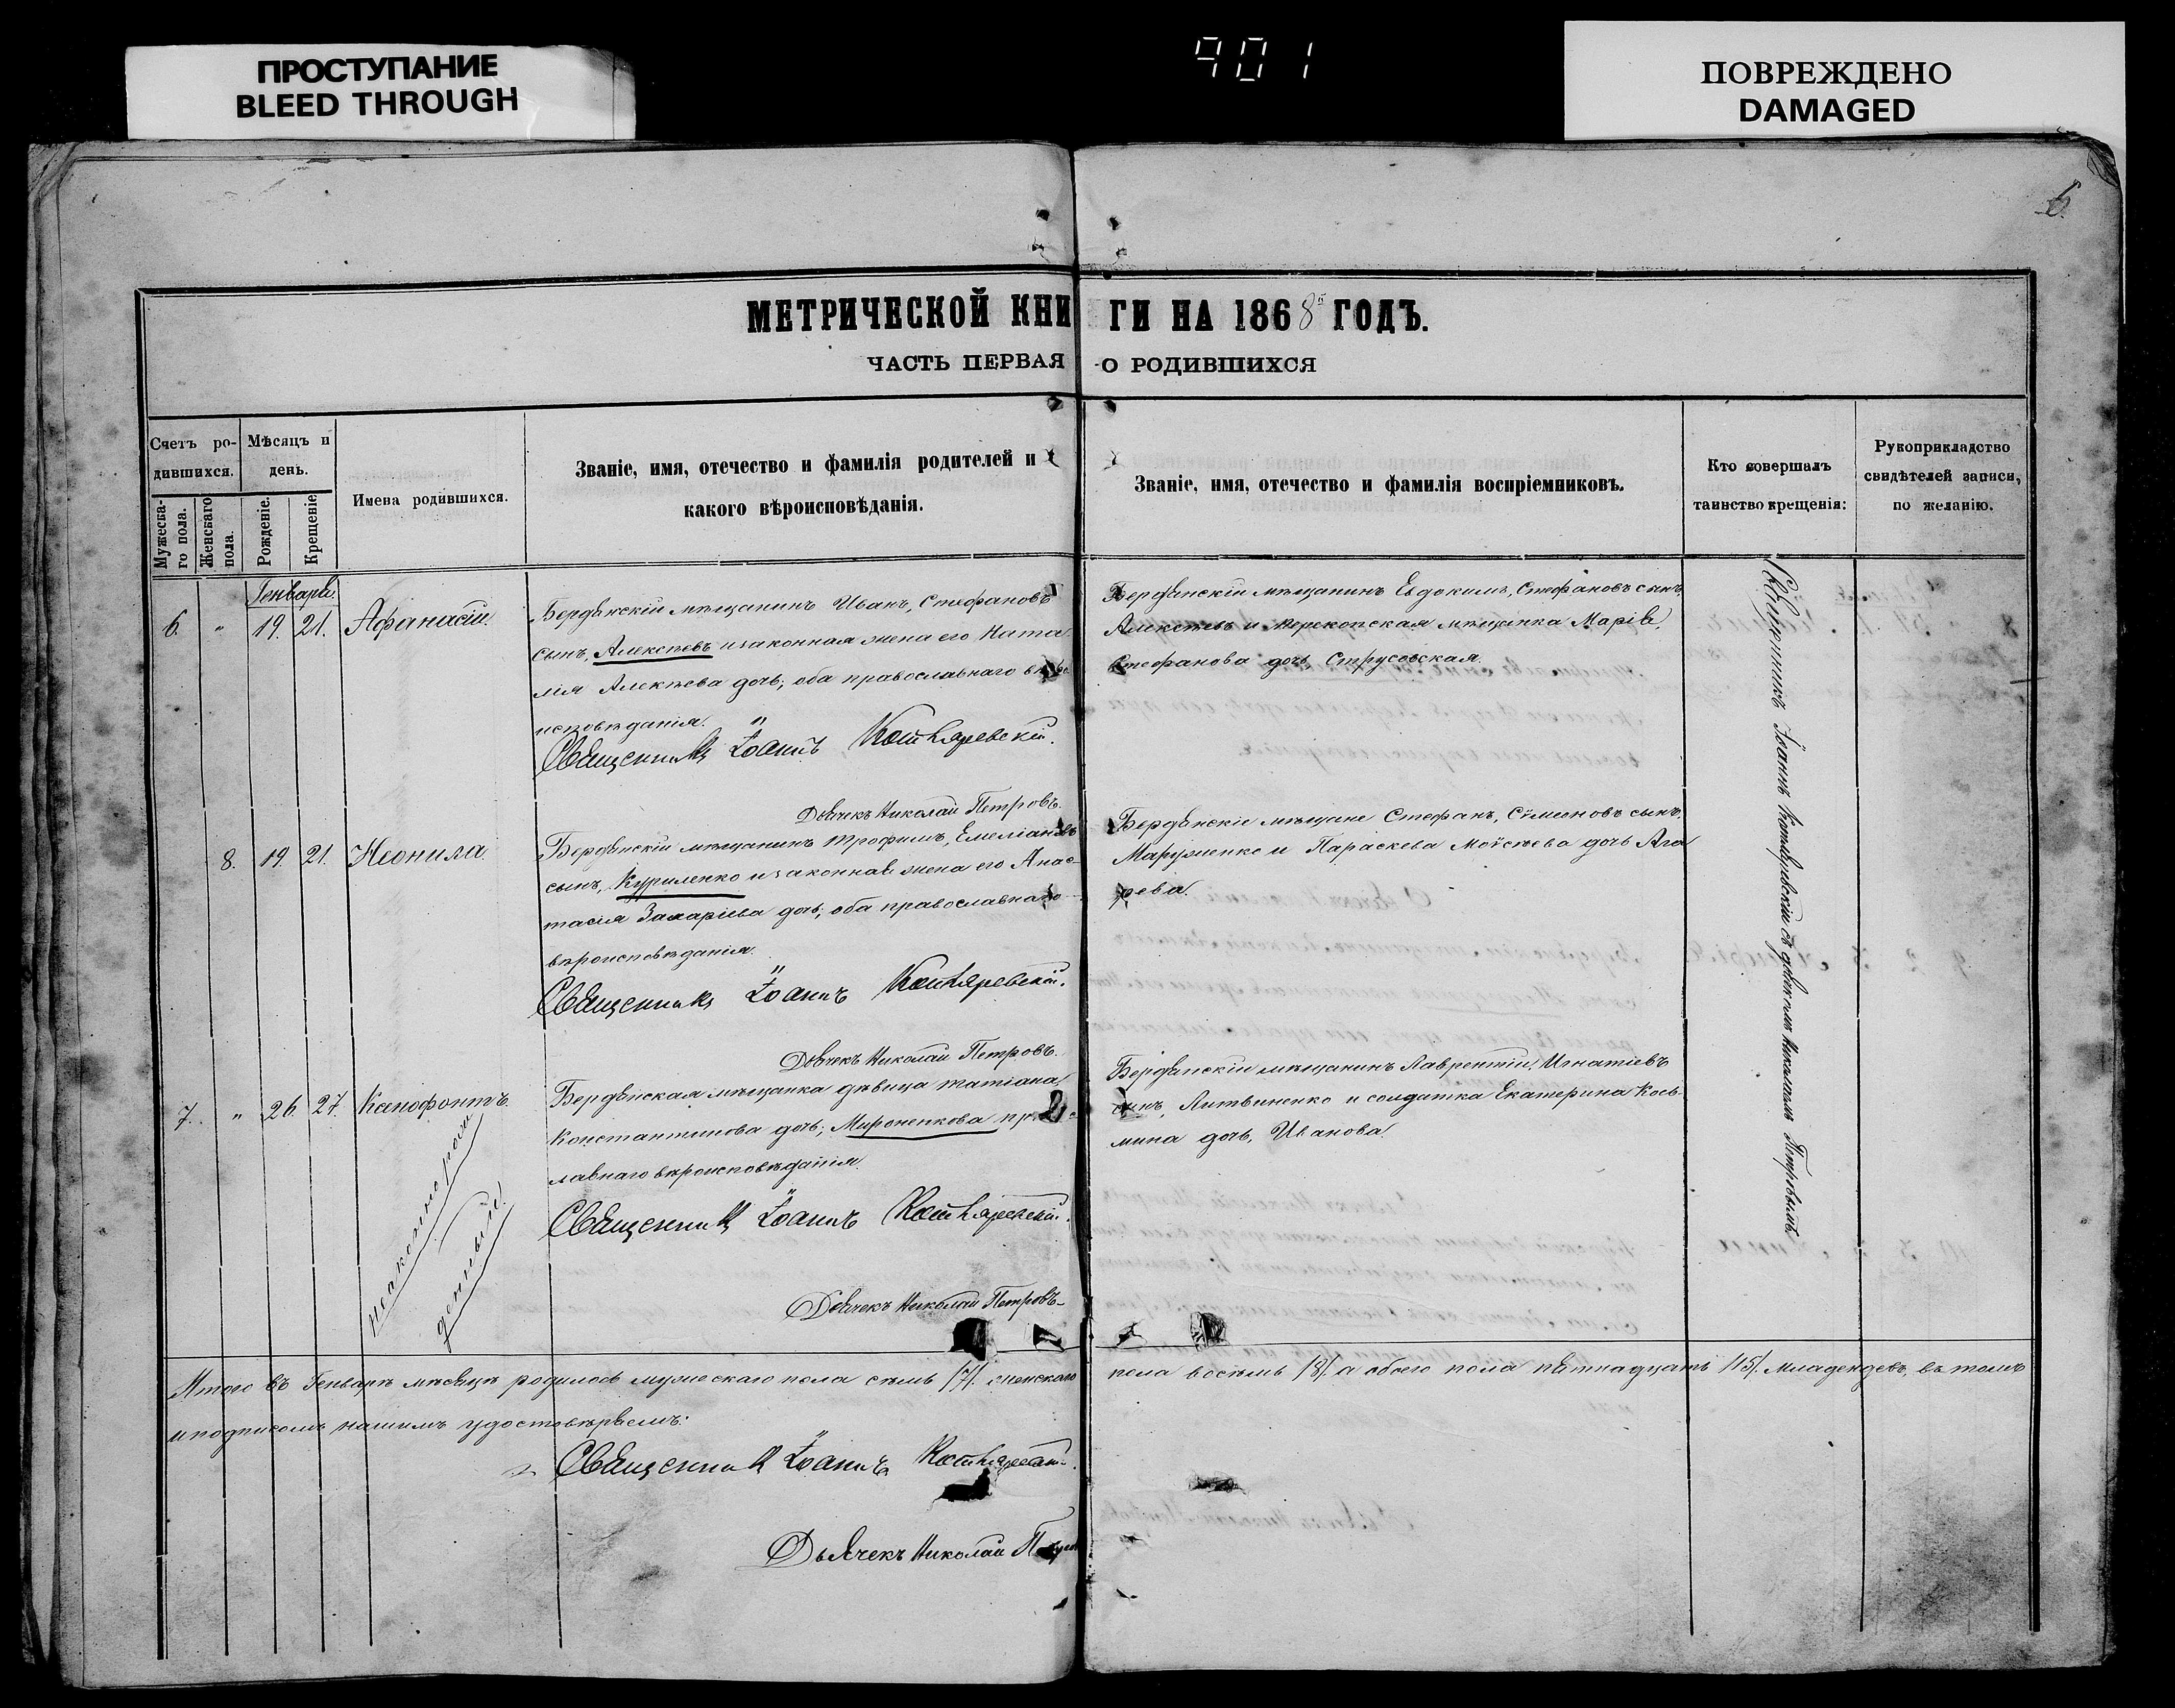 ПРОСТУПАНИЕ
BLEED THROUGH
901
ПОВРЕЖДЕНО
DAMAGED
6.
МЕТРИЧЕСКОЙ КНИГИ НА 1868й ГОДЪ.
ЧАСТЬ ПЕРВАЯ О РОДИВШИХСЯ
Счетъ ро-
дившихся.
Мужеска-
го пола.
Женскаго
пола.
Мѣсяцъ и
день.
Рожденіе.
Крещеніе.
Имена родившихся.
Званіе, имя, отечество и фамилія родителей и
какого вѣроисповѣданія.
Званіе, имя, отечество и фамилія воспріемниковъ.
Кто совершалъ
таинство крещенія:
Рукоприкладство
свидѣтелей записи,
по желанію.
Генваря.
6. " 19. 21. Афанасій.
Бердянскій мѣщанинъ Иванъ, Стефановъ
сынъ, Алексѣевъ и законная жена его Ната
лія Алексѣева дочь, оба православнаго вѣро
исповѣданія.
Священникъ Іоаннъ Котляревскій.
Дьячекъ Николай Петровъ.
Бердянскій мѣщанинъ Евдокимъ, Стефановъ сынъ,
Алексѣевъ и перекопская мѣщанка Марія,
Стефанова дочь, Струсовская.
8. 19. 21. Неонила.
Бердянскій мѣщанинъ Трофимъ, Емеліановъ
сынъ, Куриленко и законная жена его Анас-
тасія Захаріева дочь, оба православнаго
вѣроисповѣданія.
Священникъ Іоаннъ Котляревскій.
Дьячекъ Николай Петровъ.
Бердянскіе мѣщане Стефанъ, Сімеоновъ сынъ,
и Параскева Моисѣева дочь Ага
рева.
7. " 26. 27. Канофонтъ.
незаконно рож
денный.
Бердянская мѣщанка дѣвица Татіана,
Константинова дочь, Мироненкова правос
лавнаго вѣроисповѣданія.
Священникъ Іоаннъ Котляревскій.
Дьячекъ Николай Петровъ.
Бердянскій мѣщанинъ Лаврентій, Игнатіевъ
сынъ, Литвиненко и солдатка Екатерина Кось-
мина дочь, Иванова.
Священникъ Іоаннъ Котляревскій съ дьячкомъ Николаемъ Петровымъ.
Итого въ Генварѣ мѣсяцѣ родилось мужескаго пола семь /7/. женскаго пола восемь /8/. а обоего пола пятнадцать /15/. младенцевъ, въ томъ
и подписомъ нашимъ удостовѣряемъ:
Священникъ Іоаннъ Котляревскій.
Дьячекъ Николай Петровъ